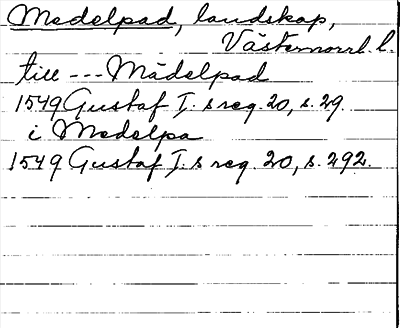 Medelpad, landskap,
Västernorrl. l.
till --- Mädelpad
1549 Gustaf I:s reg. 20, s. 29.
i Medelpa
1549 Gustaf I:s reg. 20, s. 292.